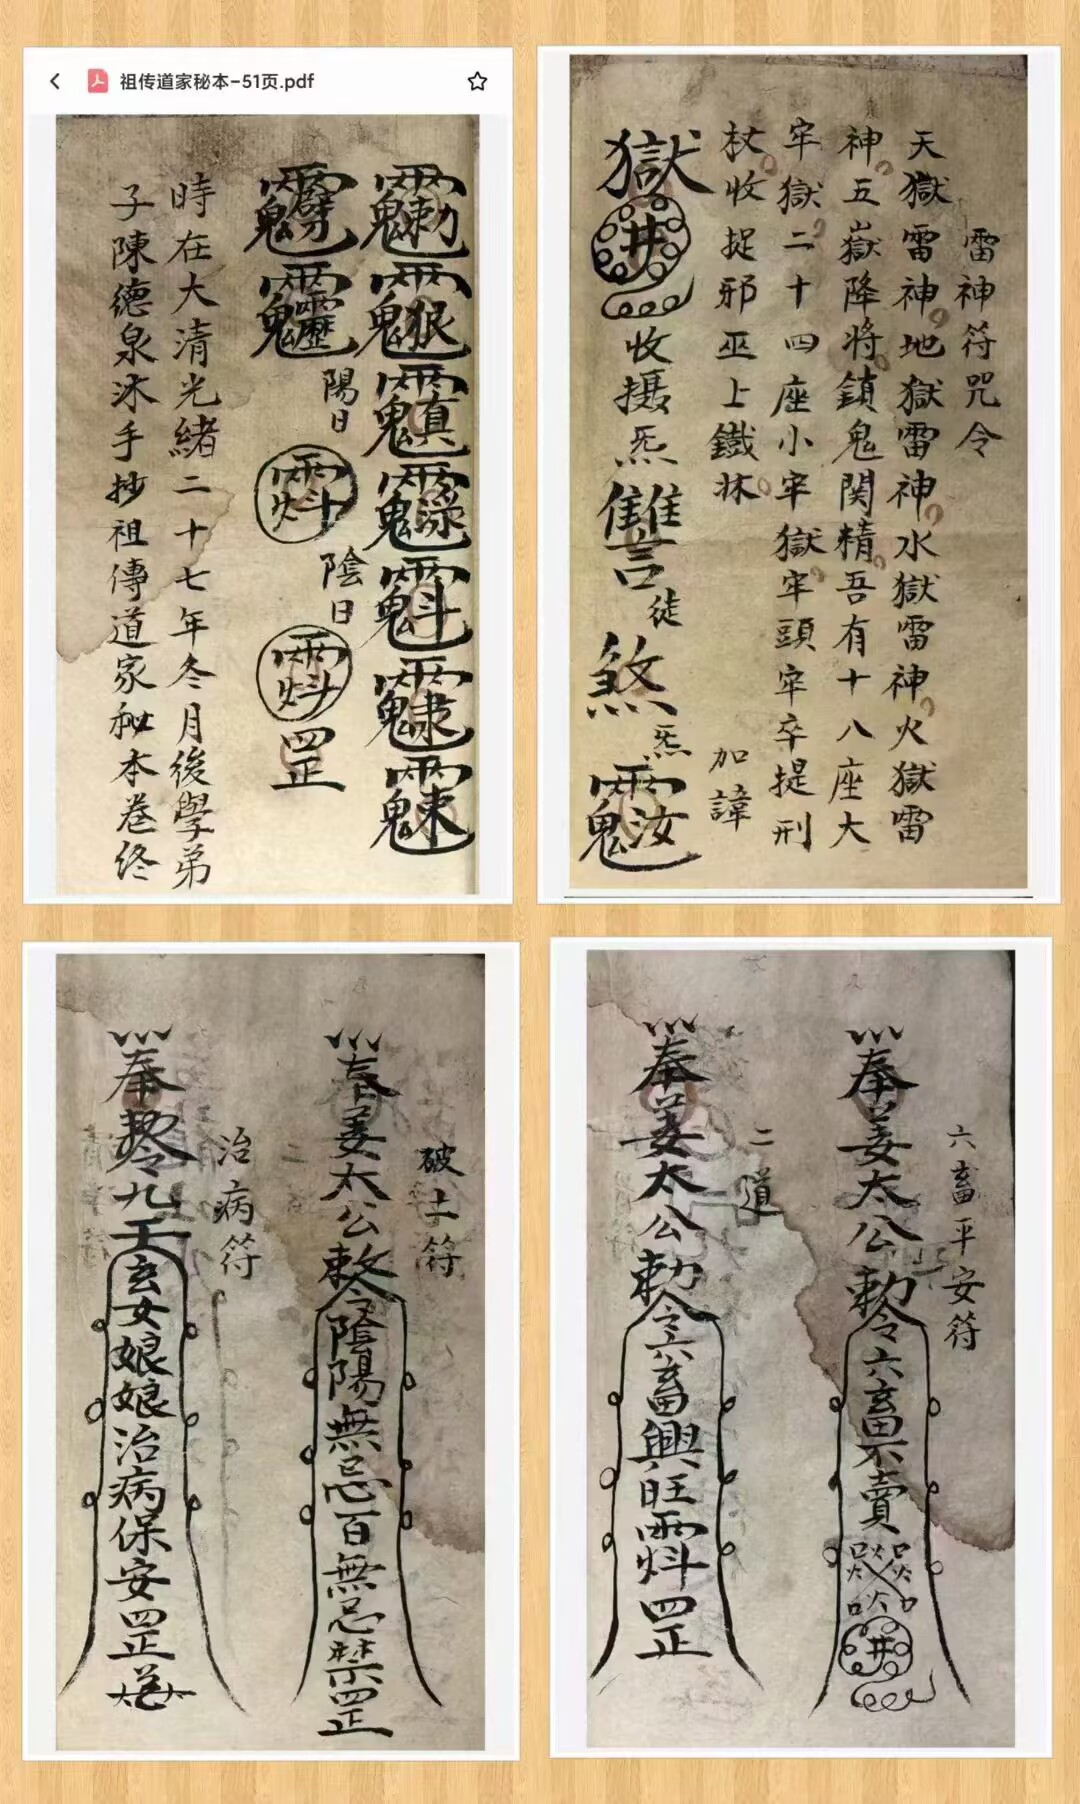 祖传道家秘本-51页.pdf
陽日
陰日
罡
時在大清光緒二十七年冬月後學弟
子陳德泉沐手抄祖傳道家秘本卷终
雷神符咒令
天獄雷神地獄雷神水獄雷神火獄雷
神五嶽降将鎖鬼関精吾有十八座大
牢獄二十四座小牢獄牢頭牢卒提刑
杖收捉邪巫上鐵牀
加諱
獄井收攝炁讐徒煞炁
破土符
奉姜太公敕令陰陽無忌百無忌禁罡
治病符
奉敕令九天玄女娘娘治病保安罡
六畜平安符
奉姜太公勅令六畜不賣井
二道
奉姜太公勅令六畜興旺罡